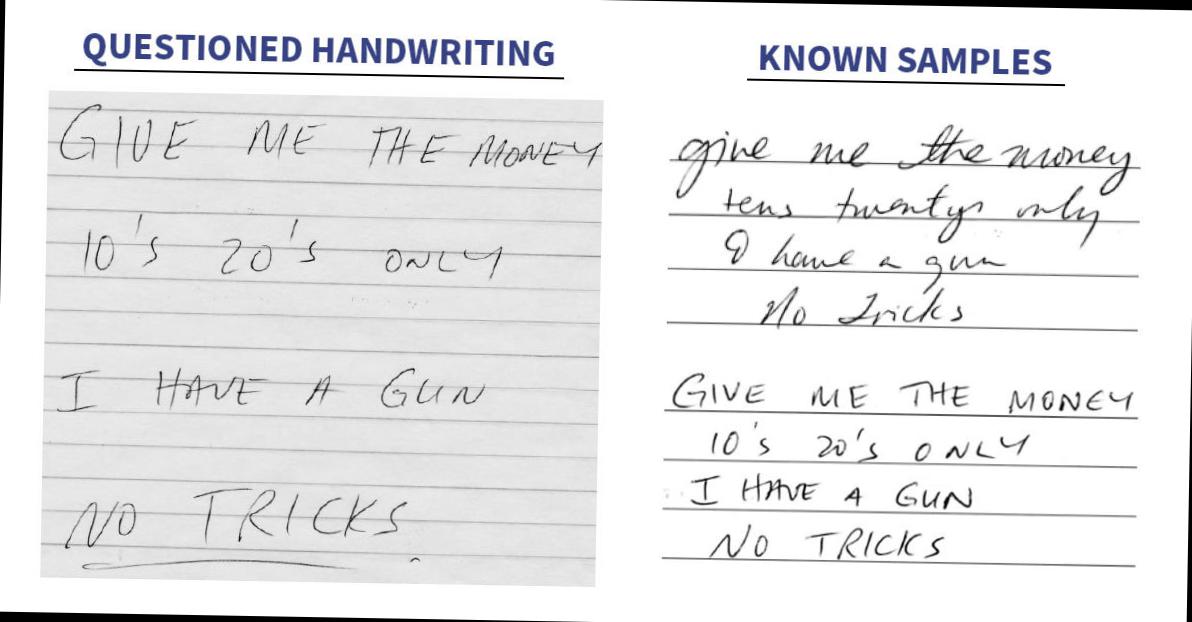 QUESTIONED HANDWRITING
GIVE ME THE MONEY
10's 20's ONLY
I HAVE A GUN
NO TRICKS.
KNOWN SAMPLES
give me the money
tens twentys only
I have a gun
No Tricks
GIVE ME THE MONEY
10's 20's ONLY
I HAVE A GUN
NO TRICKS